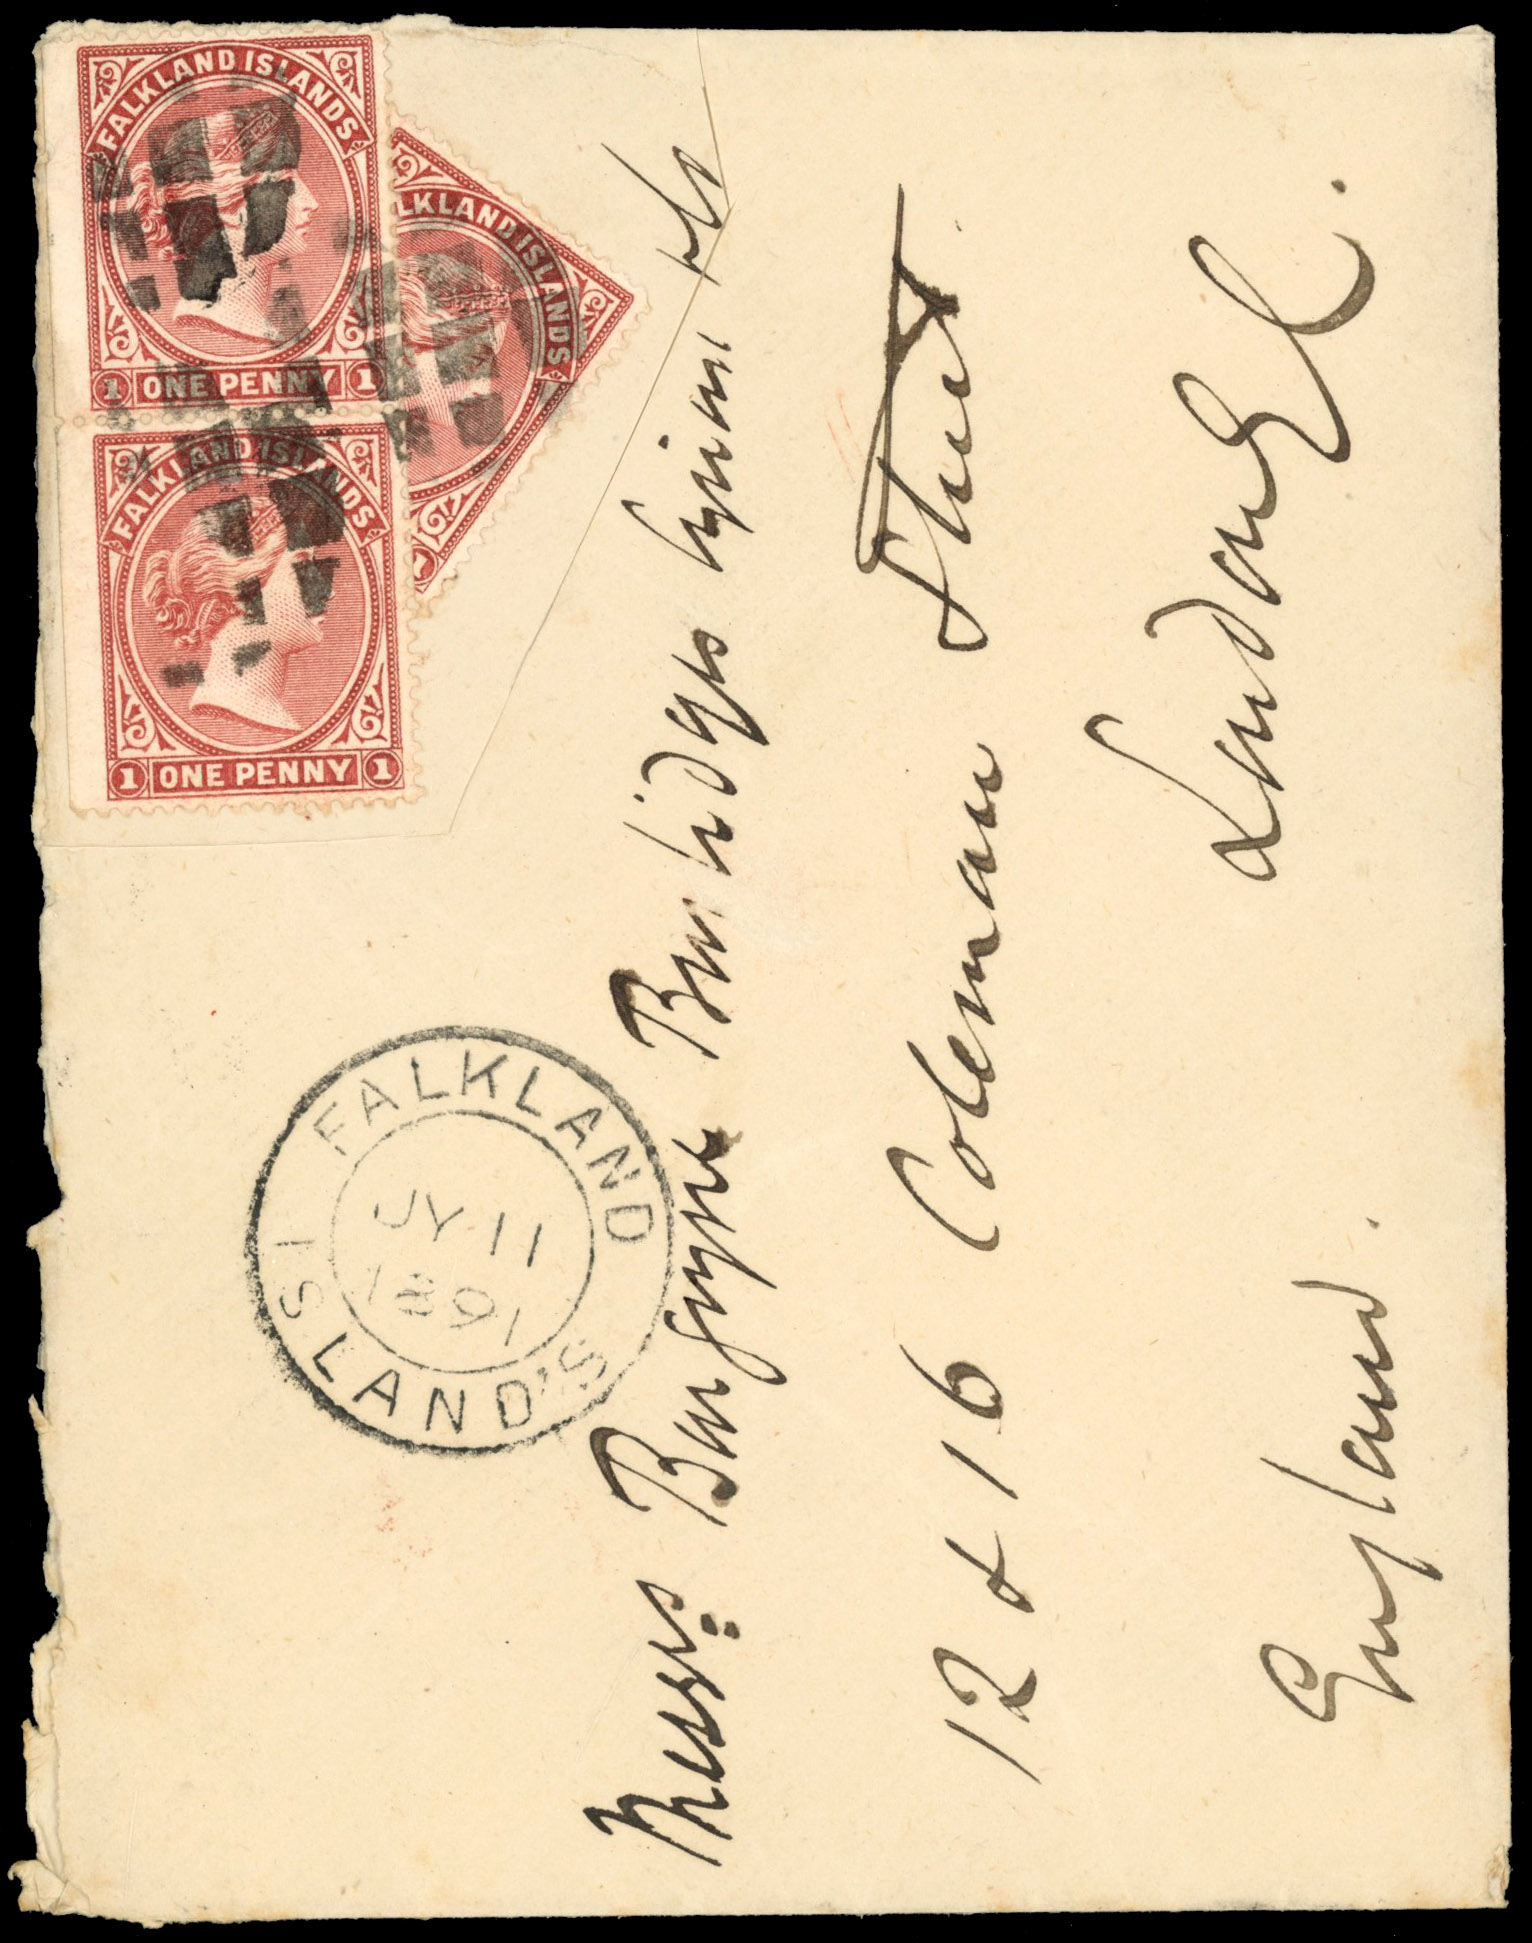 FALKLAND ISLANDS
1 ONE PENNY 1
FALKLAND ISLANDS
1 ONE PENNY 1
LKLAND ISLANDS
1
FALKLAND ISLAND'S
JY 11
1891
Messrs Burgoyne Burbidges Cyriax &c
12 & 16 Coleman Street
London E.C.
England.